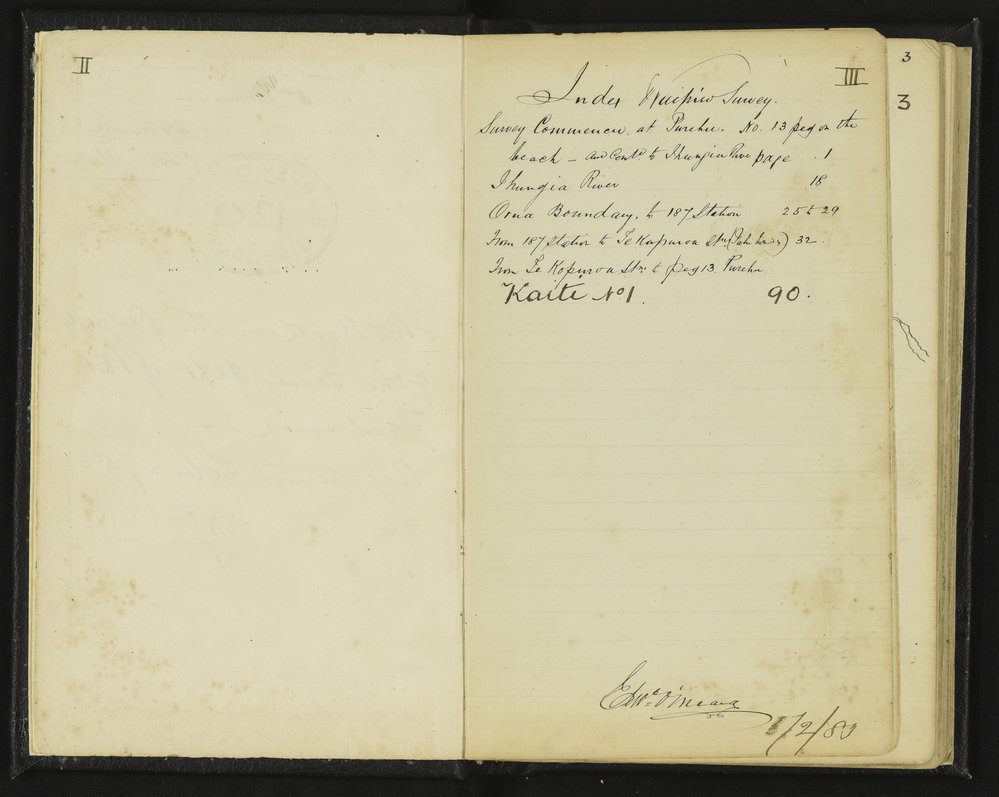 II
III
Index Waipiro Survey.
Survey Commences at Purehu. No. 13 peg on the
beach – and Contd. to Ihungia River page . 1
Ihungia River 18
Orua Boundary, to 187 Station 25 to 29
From 187 Station to Te Kopuroa Stm 32
From Te Kopuroa Stm to peg 13. Purehu.
Kaiti No 1. 90.
Edwd. O'Meara
/2/83
3
3